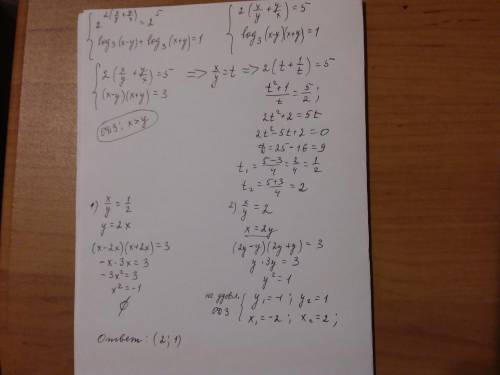 { 2^{2(x/y + y/x)} = 2^5
log₃(x-y) + log₃(x+y) = 1
{ 2(x/y + y/x) = 5
log₃(x-y)(x+y) = 1
{ 2(x/y + y/x) = 5
(x-y)(x+y) = 3
=> x/y = t => 2(t + 1/t) = 5
ОДЗ: x>y
(t²+1)/t = 5/2;
2t²+2 = 5t
2t²-5t+2 = 0
D = 25-16 = 9
t₁ = (5-3)/4 = 2/4 = 1/2
t₂ = (5+3)/4 = 2
1) x/y = 1/2
y = 2x
(x-2x)(x+2x) = 3
-x·3x = 3
-3x² = 3
x² = -1
∅
2) x/y = 2
x = 2y
(2y-y)(2y+y) = 3
y·3y = 3
y² = 1
не удовл. ОДЗ
{ y₁ = -1; y₂ = 1
x₁ = -2; x₂ = 2;
Ответ: (2; 1)